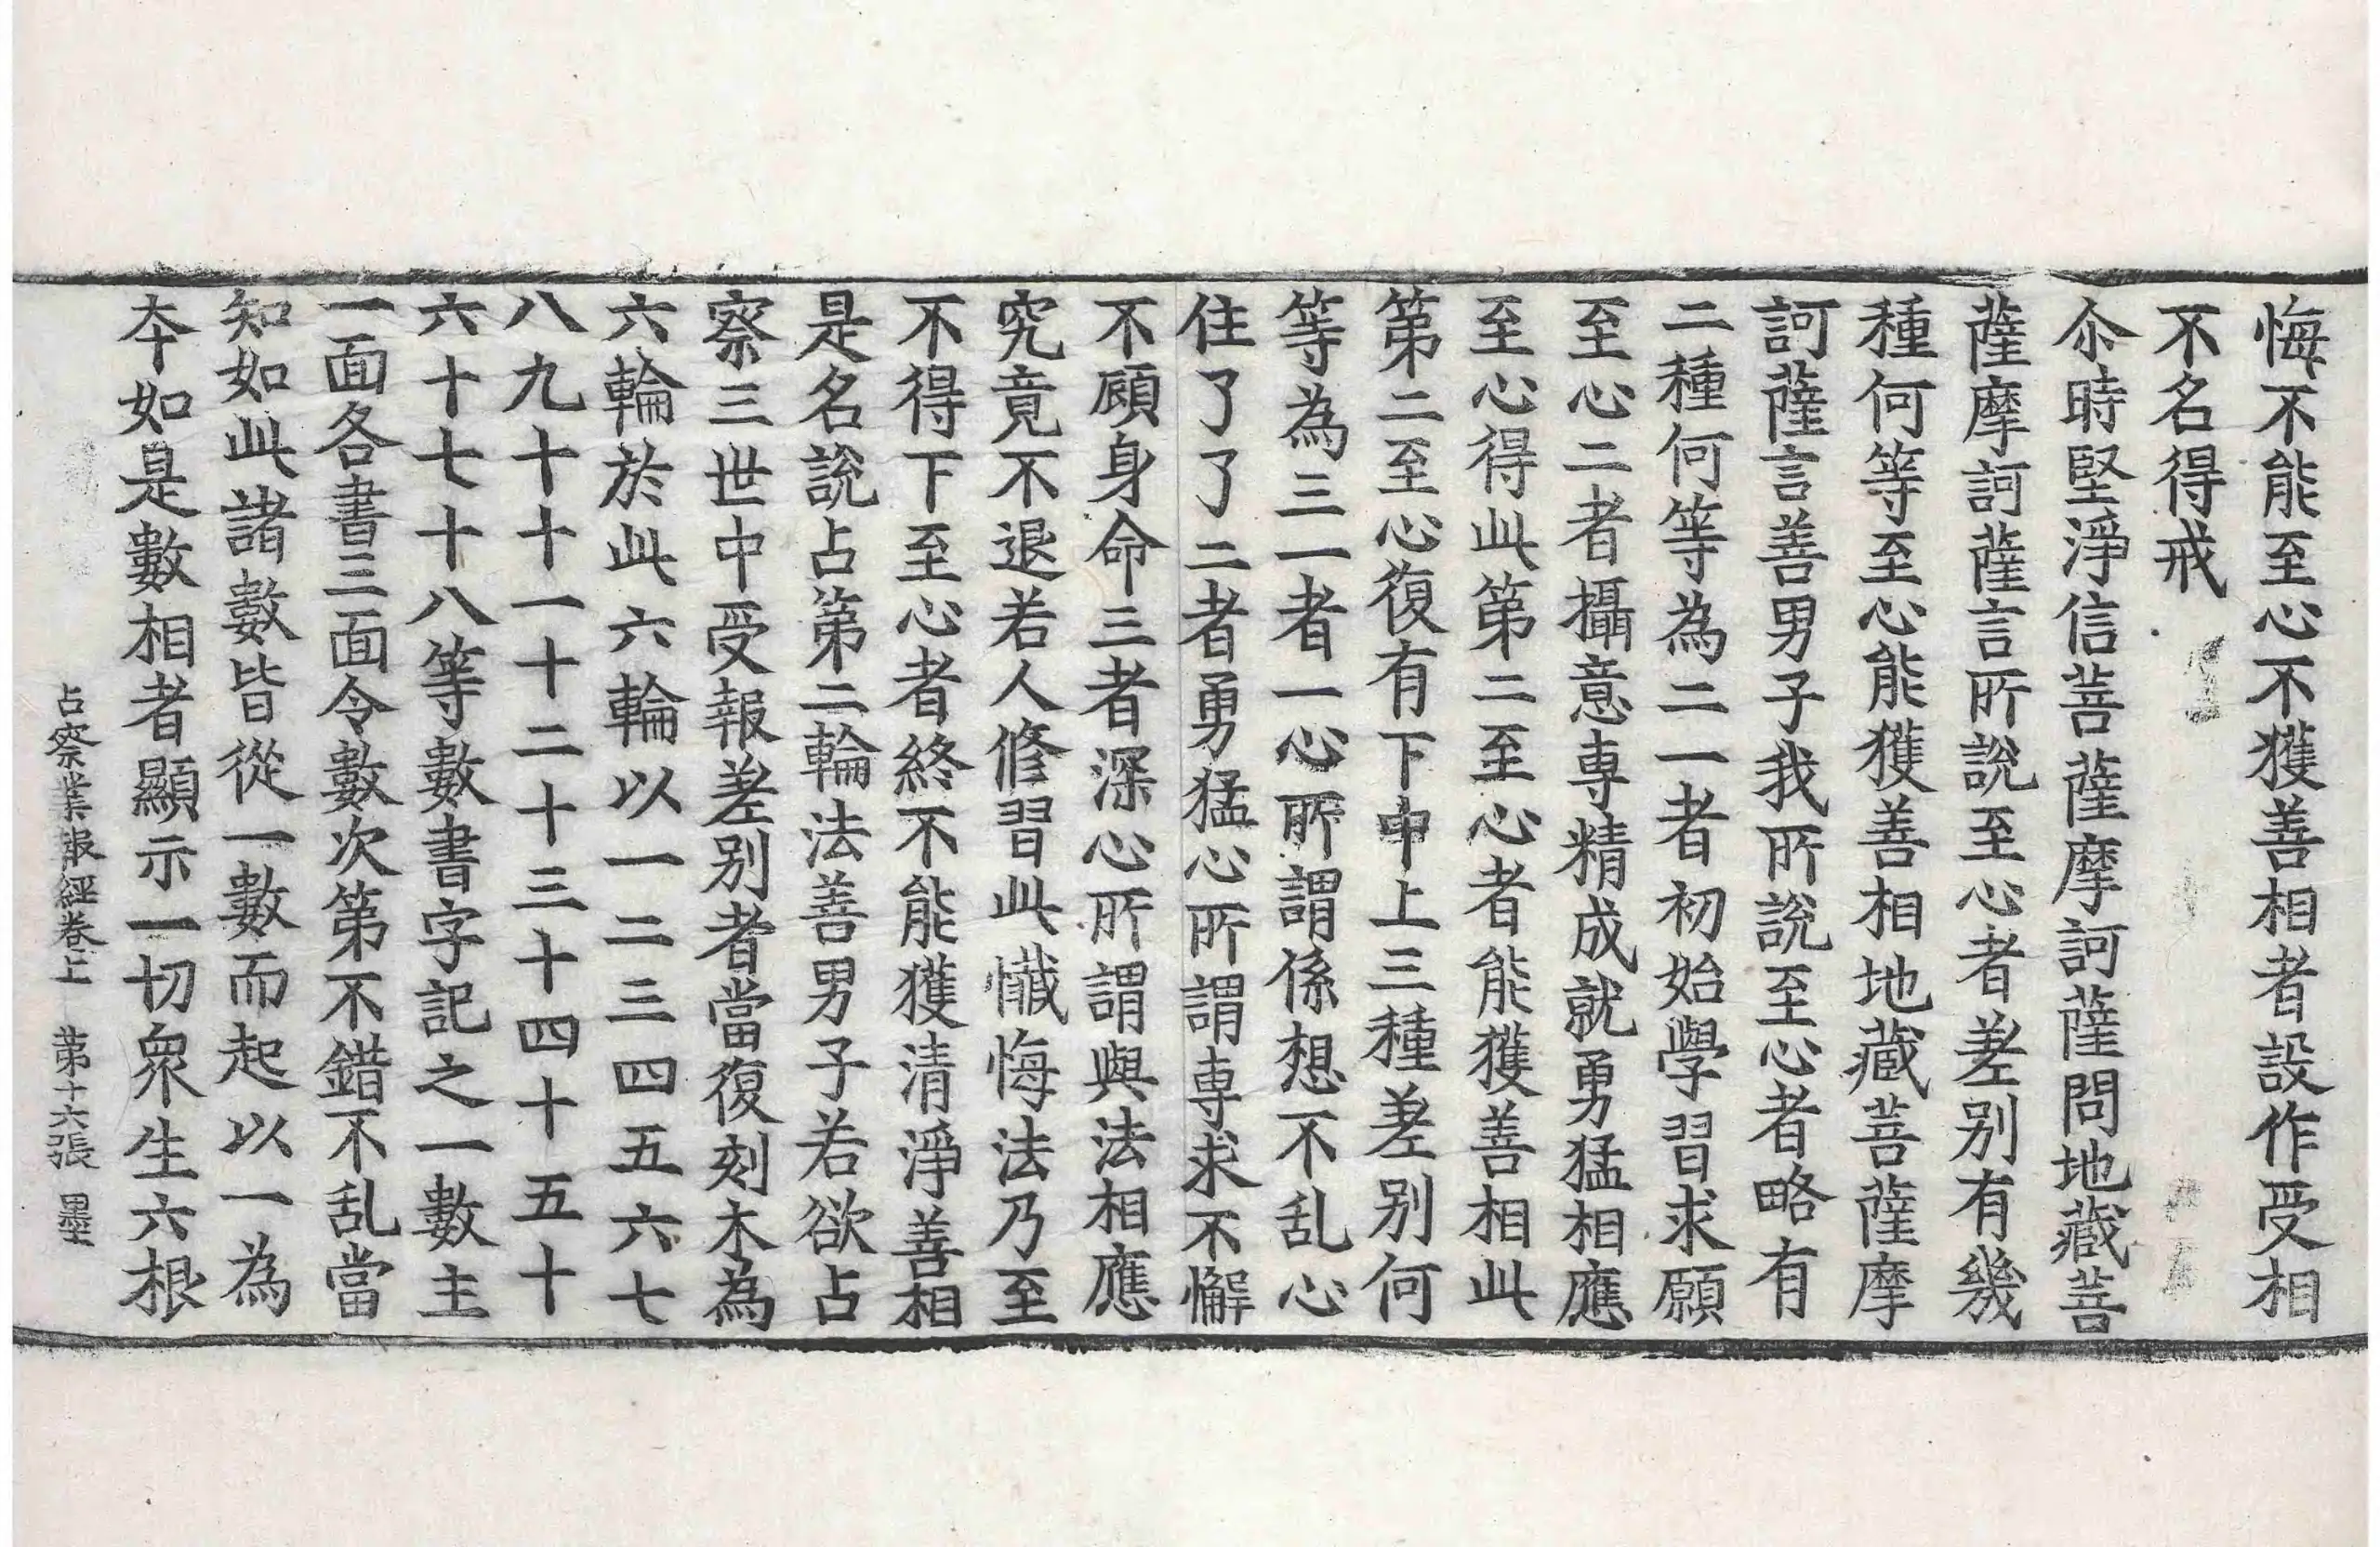 悔不能至心不獲善相者設作受相
不名得戒
尒時堅淨信菩薩摩訶薩問地藏菩
薩摩訶薩言所說至心者差别有幾
種何等至心能獲善相地藏菩薩摩
訶薩言善男子我所說至心者略有
二種何等為二一者初始學習求願
至心二者攝意專精成就勇猛相應
至心得此第二至心者能獲善相此
第二至心復有下中上三種差别何
等為三一者一心所謂係想不乱心
住了了二者勇猛心所謂專求不懈
不顧身命三者深心所謂與法相應
究竟不退若人修習此懺悔法乃至
不得下至心者終不能獲清淨善相
是名說占第二輪法善男子若欲占
察三世中受報差别者當復刻木為
六輪於此六輪以一二三四五六七
八九十十一十二十三十四十五十
六十七十八等數書字記之一數主
一面各書三面令數次第不錯不乱當
知如此諸數皆從一數而起以一為
夲如是數相者顯示一切衆生六根
占察業報經卷上　第十六張　墨